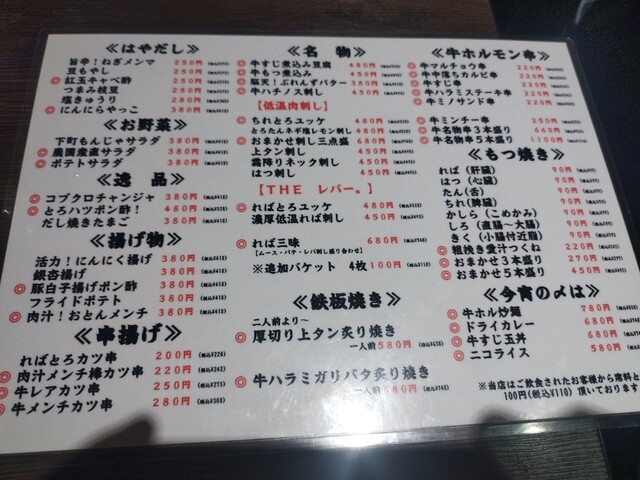 ≪はやだし≫
旨辛！ねぎメンマ 250円
豆もやし 250円
◎紅玉キャベ酢 250円
つまみ枝豆 250円
塩きゅうり 280円
◎にんにらやっこ 380円
≪お野菜≫
下町もんじゃサラダ 380円
◎農園産直サラダ 480円
◎ポテトサラダ 380円
≪逸品≫
◎コブクロチャンジャ 380円
◎とろハツポン酢！ 480円
だし焼きたまご 380円
≪揚げ物≫
活力！にんにく揚げ 380円
銀杏揚げ 380円
◎豚白子揚げポン酢 380円
フライドポテト 380円
◎肉汁！おとんメンチ 380円
≪串揚げ≫
ればとろカツ串 200円 (税込¥220)
◎肉汁メンチ棒カツ串 220円 (税込¥242)
◎牛レアカツ串 250円 (税込¥275)
◎牛メンチカツ串 280円 (税込¥308)
≪名物≫
◎牛すじ煮込み豆腐 480円
◎牛もつ煮込み 450円
◎脳天！ぶれんずバター 380円
◎牛ハチノス刺し 450円
【低温肉刺し】
◎ちれとろユッケ 480円
とろたんネギ塩レモン刺し 480円
◎おまかせ刺し三点盛 680円
上タン刺し 450円
霜降りネック刺し 450円
はつ刺し 450円
【THE レバー。】
◎ればとろユッケ 480円
濃厚低温れば刺し 450円
◎れば三昧 680円
【ムース・パテ・レバ刺し盛り合わせ】
※追加バケット 4枚100円
≪鉄板焼き≫
二人前より～
◎厚切り上タン炙り焼き
一人前580円
◎牛ハラミガリバタ炙り焼き
一人前680円
≪牛ホルモン串≫
◎牛マルチョウ串 220円
◎牛中落ちカルビ串 220円
◎牛すじ串 220円
◎牛ハラミステーキ串 220円
◎牛ミノサンド串 220円
◎牛ミンチー串 250円
◎牛名物串3本盛り 660円
◎牛名物串5本盛り 1100円
≪もつ焼き≫
れば (肝臓) 90円
はつ (心臓) 90円
たん (舌) 90円
ちれ (脾臓) 90円
かしら (こめかみ) 90円
しろ (直腸～大腸) 90円
きく (小腸付近脂) 90円
◎粗挽き愛汁つくね 220円
◎おまかせ3本盛り 270円
◎おまかせ5本盛り 450円
≪今宵の〆は≫
◎牛ホル炒麺 780円
◎ドライカレー 680円
◎牛すじ玉丼 680円
◎ニコライス 580円
※当店はご飲食されたお客様から席料と
100円(税込¥110) 頂いております